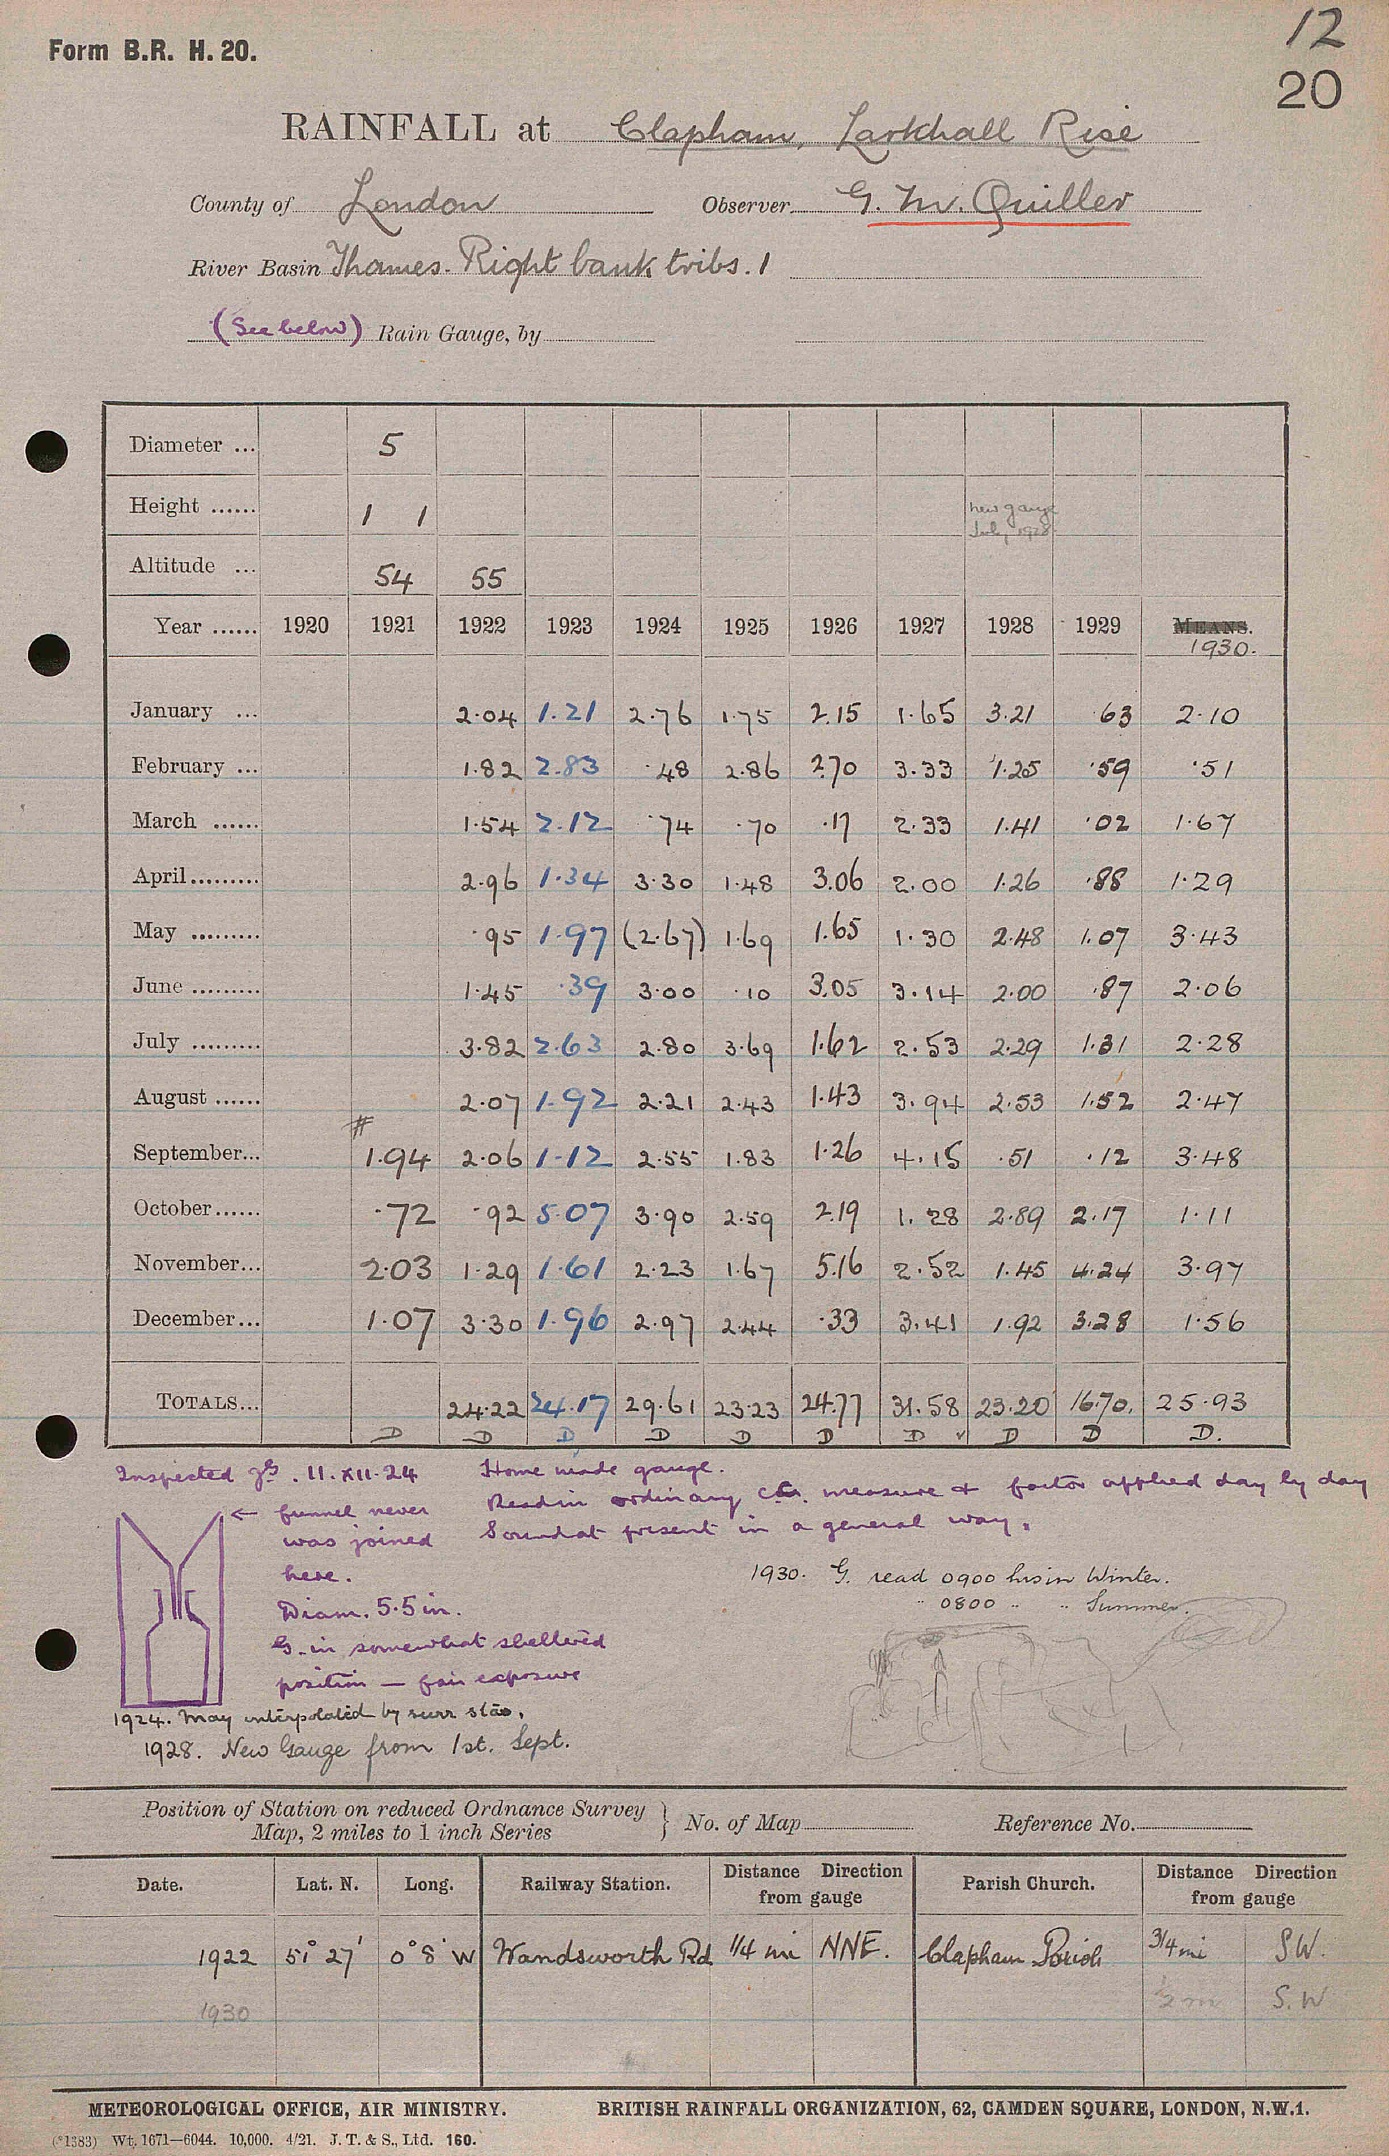 12
Form B.R. H. 20.
20
RAINFALL at Clapham, Larkhall Rise
County of London Observer G. M. Quiller
River Basin Thames. Right bank tribs. 1
(See below) Rain Gauge, by
Diameter ... 5
Height ...... 1 1 new gauge
July 1928
Altitude ... 54 55
Year ...... 1920 1921 1922 1923 1924 1925 1926 1927 1928 1929 MEANS.
1930.
January ... 2.04 1.21 2.76 1.75 2.15 1.65 3.21 .63 2.10
February ... 1.82 2.83 .48 2.86 2.70 3.33 1.25 .59 .51
March ...... 1.54 2.12 .74 .70 .17 2.33 1.41 .02 1.67
April ......... 2.96 1.34 3.30 1.48 3.06 2.00 1.26 .88 1.29
May ......... .95 1.97 (2.67) 1.69 1.65 1.30 2.48 1.07 3.43
June ......... 1.45 .39 3.00 .10 3.05 3.14 2.00 .87 2.06
July ......... 3.82 2.63 2.80 3.69 1.62 2.53 2.29 1.31 2.28
August ...... 2.07 1.92 2.21 2.43 1.43 3.94 2.53 1.52 2.47
#
September... 1.94 2.06 1.12 2.55 1.83 1.26 4.15 .51 .12 3.48
October ...... .72 .92 5.07 3.90 2.59 2.19 1.28 2.89 2.17 1.11
November... 2.03 1.29 1.61 2.23 1.67 5.16 2.52 1.45 4.24 3.97
December... 1.07 3.30 1.96 2.97 2.44 .33 3.41 1.92 3.28 1.56
TOTALS... 24.22 24.17 29.61 23.23 24.77 31.58 23.20 16.70. 25.93
D D D D D D D v D D D.
Inspected . 11.XII.24 Home made gauge.
Read in ordinary measure & factor applied day by day
Sound at present in a general way.
← funnel never
was joined
here.
Diam. 5.5 in.
G. in somewhat sheltered
position — fair exposure
1930. G. read 0900 hrs in Winter.
" 0800 " " Summer.
1924. May interpolated by surr stns.
1928. New Gauge from 1st. Sept.
Position of Station on reduced Ordnance Survey
Map, 2 miles to 1 inch Series } No. of Map Reference No.
Date. Lat. N. Long. Railway Station. Distance Direction
from gauge Parish Church. Distance Direction
from gauge
1922 51° 27' 0° 8' W Wandsworth Rd 1/4 mi NNE. Clapham Parish 3/4 mi SW.
1930 1/2 m S.W
METEOROLOGICAL OFFICE, AIR MINISTRY. BRITISH RAINFALL ORGANIZATION, 62, CAMDEN SQUARE, LONDON, N.W.1.
(*1383) Wt. 1671—6044. 10,000. 4/21. J. T. & S., Ltd. 160.